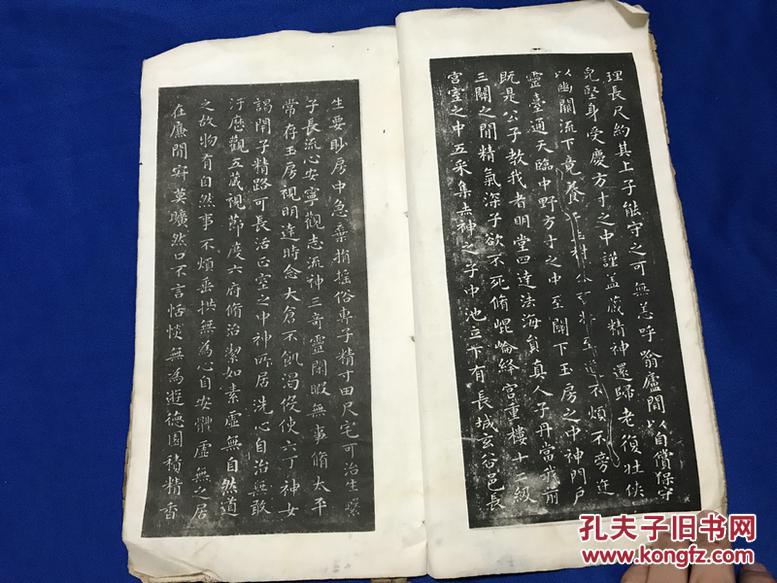 理長尺約其上子能守之可無恙呼翕廬間以自償保守
完堅身受慶方寸之中謹蓋藏精神還歸老復壮侠
以幽關流下竟養子玉樹不煩不旁迕
靈臺通天臨中野方寸之中至關下玉房之中神門戶
既是公子教我者明堂四達法海員真人子丹當我前
三關之間精氣深子欲不死脩崐崘絳宮重樓十二級
宮室之中五采集赤神之子中池立下有長城玄谷邑長
生要眇房中急棄捐搖俗專子精寸田尺宅可治生
子長流心安寧觀志流神三奇靈閑暇無事脩太平
常存玉房視明達時念大倉不飢渴役使六丁神女
謁閉子精路可長活正室之中神所居洗心自治無敢
汙歷觀五藏視節度六府脩治潔如素虛無自然道
之故物有自然事不煩垂拱無為心自安體虛無之居
在廉間寂莫曠然口不言恬惔無為遊德園積精香
孔夫子旧书网
www.kongfz.com